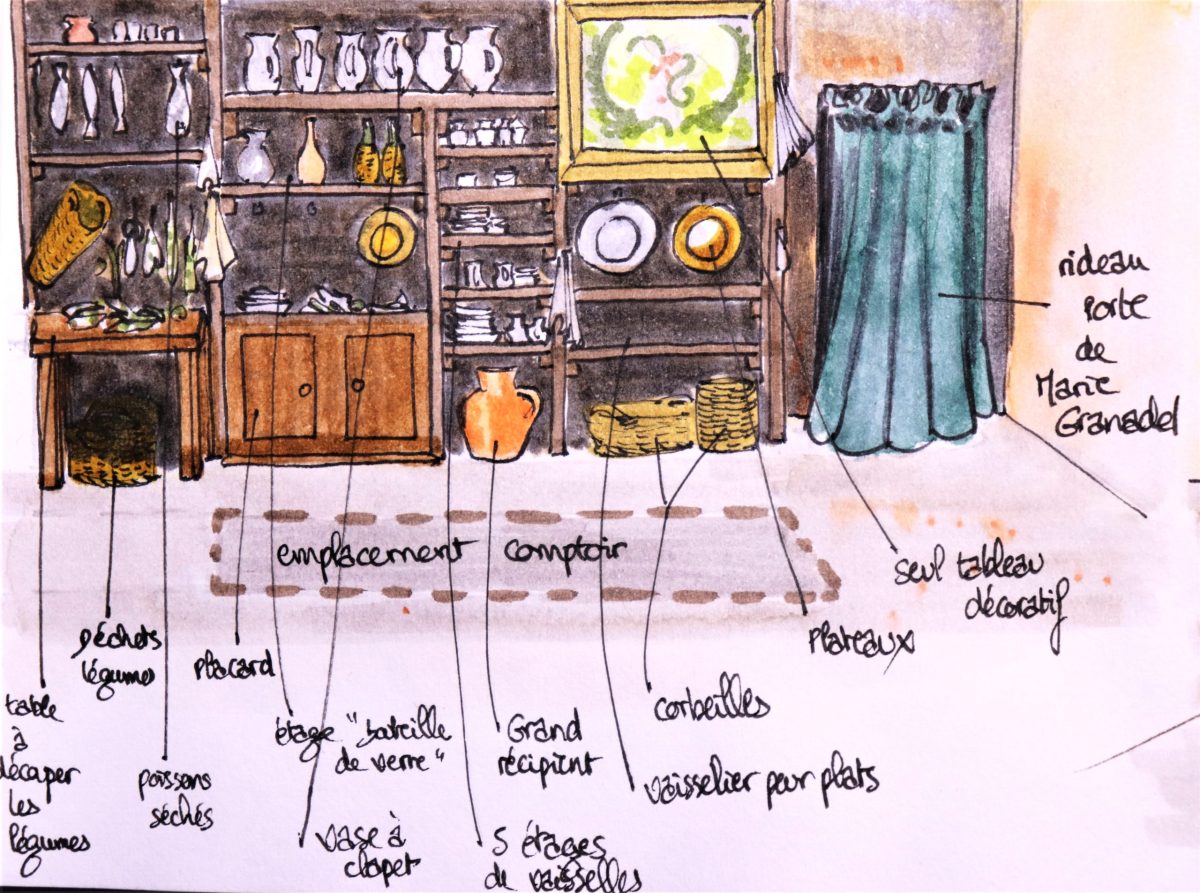 rideau
porte
de
Marie
Granadel
emplacement comptoir
seul tableau
décoratif
Plateaux
Déchets
légumes
Placard
corbeilles
table
à
décaper
les
légumes
poissons
séchés
étage "bouteille
de verre"
Grand
récipient
vaisselier pour plats
vase à
clapet
5 étages
de vaisselles